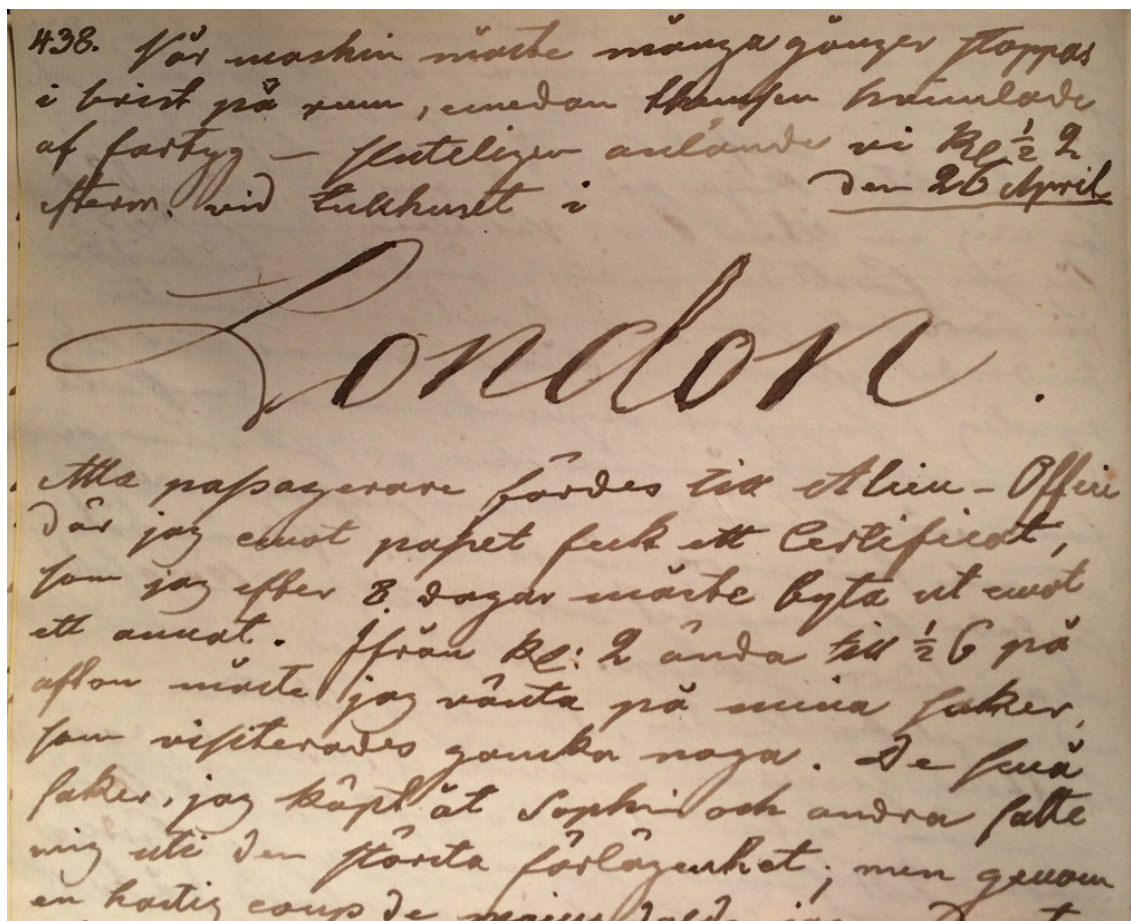 438. Vår maskin måste många gånger stoppas
i brist på rum, emedan themsen vimlade
af fartyg — sluteligen anlände vi kl ½ 2
den 26 April
efterm. vid tullhuset i
London.
Alla passagerare fördes till Alien-Office
där jag emot passet feck ett Certificat,
som jag efter 8. dagar måste byta ut emot
ett annat. Ifrån kl: 2 ända till ½ 6 på
afton måste jag vänta på mina saker,
som visiterades ganska noga. De små
saker, jag köpt åt Sophie och andra satte
mig uti den största förlägenhet; men genom
en hastig coup de main